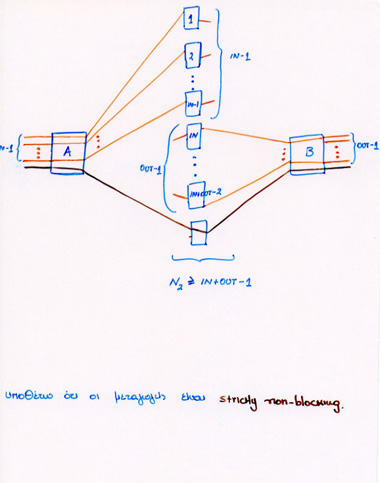 1
IN-1
2
IN-1
IN-1
IN
OUT-1
A
B
OUT-1
IN+OUT-2
N₂ ≥ IN+OUT-1
υποθέτω ότι οι μεταγωγείς είναι strictly non-blocking.